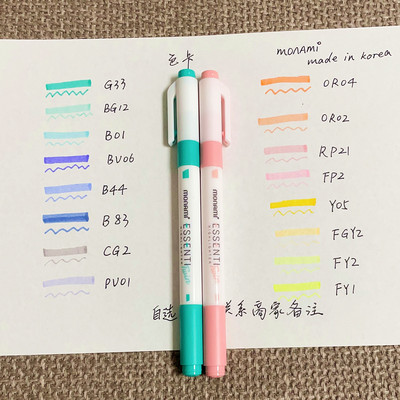 色卡
monami
made in korea
G33
BG12
B01
BV06
B44
B83
CG2
PV01
OR04
OR02
RP21
FP2
Y05
FGY2
FY2
FY1
monami
ESSENTI
monami
ESSENTI
自选
联系商家备注